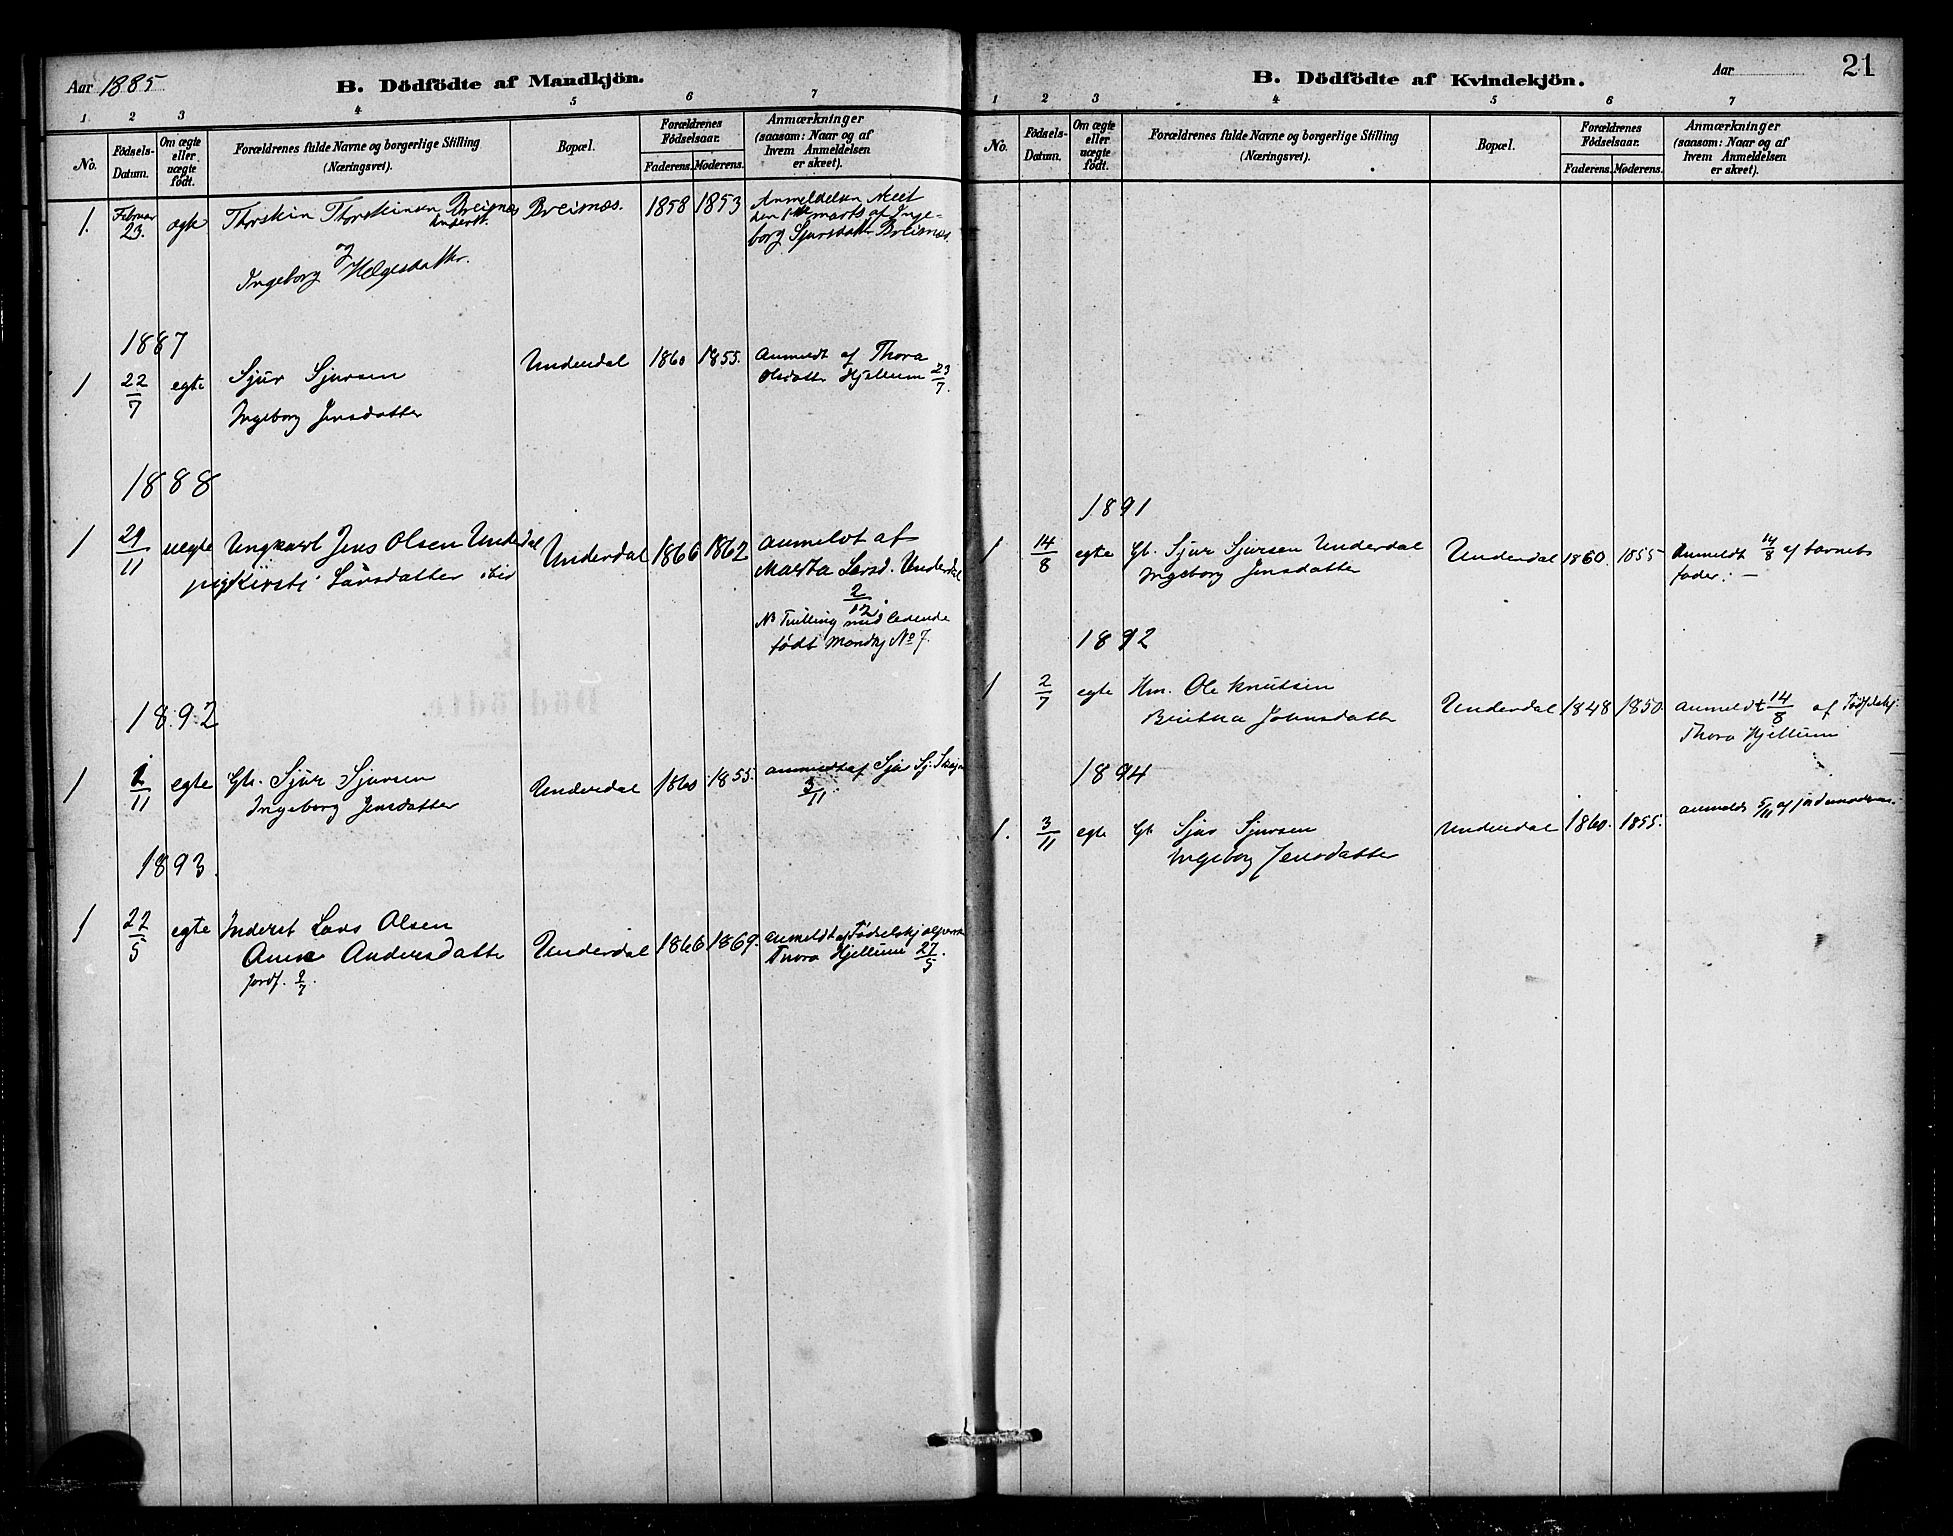 Aar 1885
B. Dödfödte af Mandkjön.
1 2 3 4 5 6 7
No.
Födsels-
Datum.
Om ægte
eller
uægte
födt.
Forældrenes fulde Navne og borgerlige Stilling
(Næringsvei).
Bopæl.
Forældrenes
Födselsaar.
Faderens. Moderens.
Anmærkninger
(saasom: Naar og af
hvem Anmeldelsen
er skeet).
1. Februar 23. ægte Thorstein Thorsteinsen Breisnæs Breisnæs. 1858 1853 Anmeldelsen skeet
Inderst. den 1ste marts af Inge-
og borg Sjursdatter Breisnæs.
Ingeborg Helgesdatter.
1887
1 22/7 egte Sjur Sjursen Underdal 1860 1855. Anmeldt af Thora
Ingeborg Jensdatter Olsdatter Hjellum 23/7.
1888
1 29/11 uegte Ungkarl Jens Olsen Underdal Underdal 1866 1862 Anmeldt af
pig Kirsti Larsdatter ibid Marta Larsd. Underdal
2/12.
Tvilling med levende
født Mandkj No 7.
1892
1 1/11 egte Gb. Sjur Sjursen Underdal 1860 1855. anmeldt af Sjur Sj.
Ingeborg Jensdatter 3/11.
1893.
1 22/5 egte Inderst Lars Olsen Underdal 1866 1869. Anmeldt af Fødselshj
Anna Andersdatter Thora Hjellum 27/5.
Jordf. 2/7.
Aar 21
B. Dödfödte af Kvindekjön.
1 2 3 4 5 6 7
No.
Födsels-
Datum.
Om ægte
eller
uægte
födt.
Forældrenes fulde Navne og borgerlige Stilling
(Næringsvei).
Bopæl.
Forældrenes
Födselsaar.
Faderens. Moderens.
Anmærkninger
(saasom: Naar og af
hvem Anmeldelsen
er skeet).
1891
1 14/8 egte Gb. Sjur Sjursen Underdal Underdal 1860. 1855 Anmeldt 14/8 af barnets
Ingeborg Jensdatter fader. –
1892
1 2/7 egte Hm. Ole Knutsen Underdal 1848 1850. anmeldt 14/8 af Fødselshj.
Britha Johnsdatter Thora Hjellum
1894
1. 3/11 egte Gb Sjur Sjursen Underdal 1860. 1855. anmeldt 5/11 af jordemoderen.
Ingeborg Jensdatter